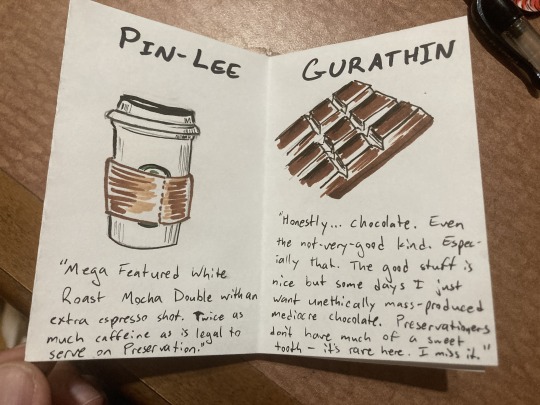 PIN-LEE
"Mega Featured White
Roast Mocha Double with an
extra espresso shot. Twice as
much caffeine as is legal to
serve on Preservation."
GURATHIN
"Honestly... chocolate. Even
the not-very-good kind. Espec-
ially that. The good stuff is
nice but some days I just
want unethically mass-produced
mediocre chocolate. Preservationers
don't have much of a sweet
tooth – it's rare here. I miss it."